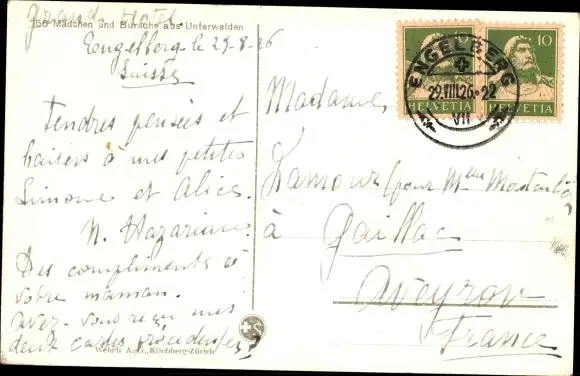 Grand Hotel
156 Mädchen und Bursche aus Unterwalden
Engelberg le 29-8-26
Suisse
Tendres pensées et
baisers à mes petites
Simone et Alice.
N. Hazarian.
Des compliments à
votre maman.
avez-vous reçu mes
deux cartes précédentes?
Wehrli A.-G., Kilchberg-Zürich
ENGELBERG
29.VIII.26.-22
VII
10
HELVETIA
HELVETIA
Madame,
Lamour (pour Mme
à
Gaillac
Aveyron
France